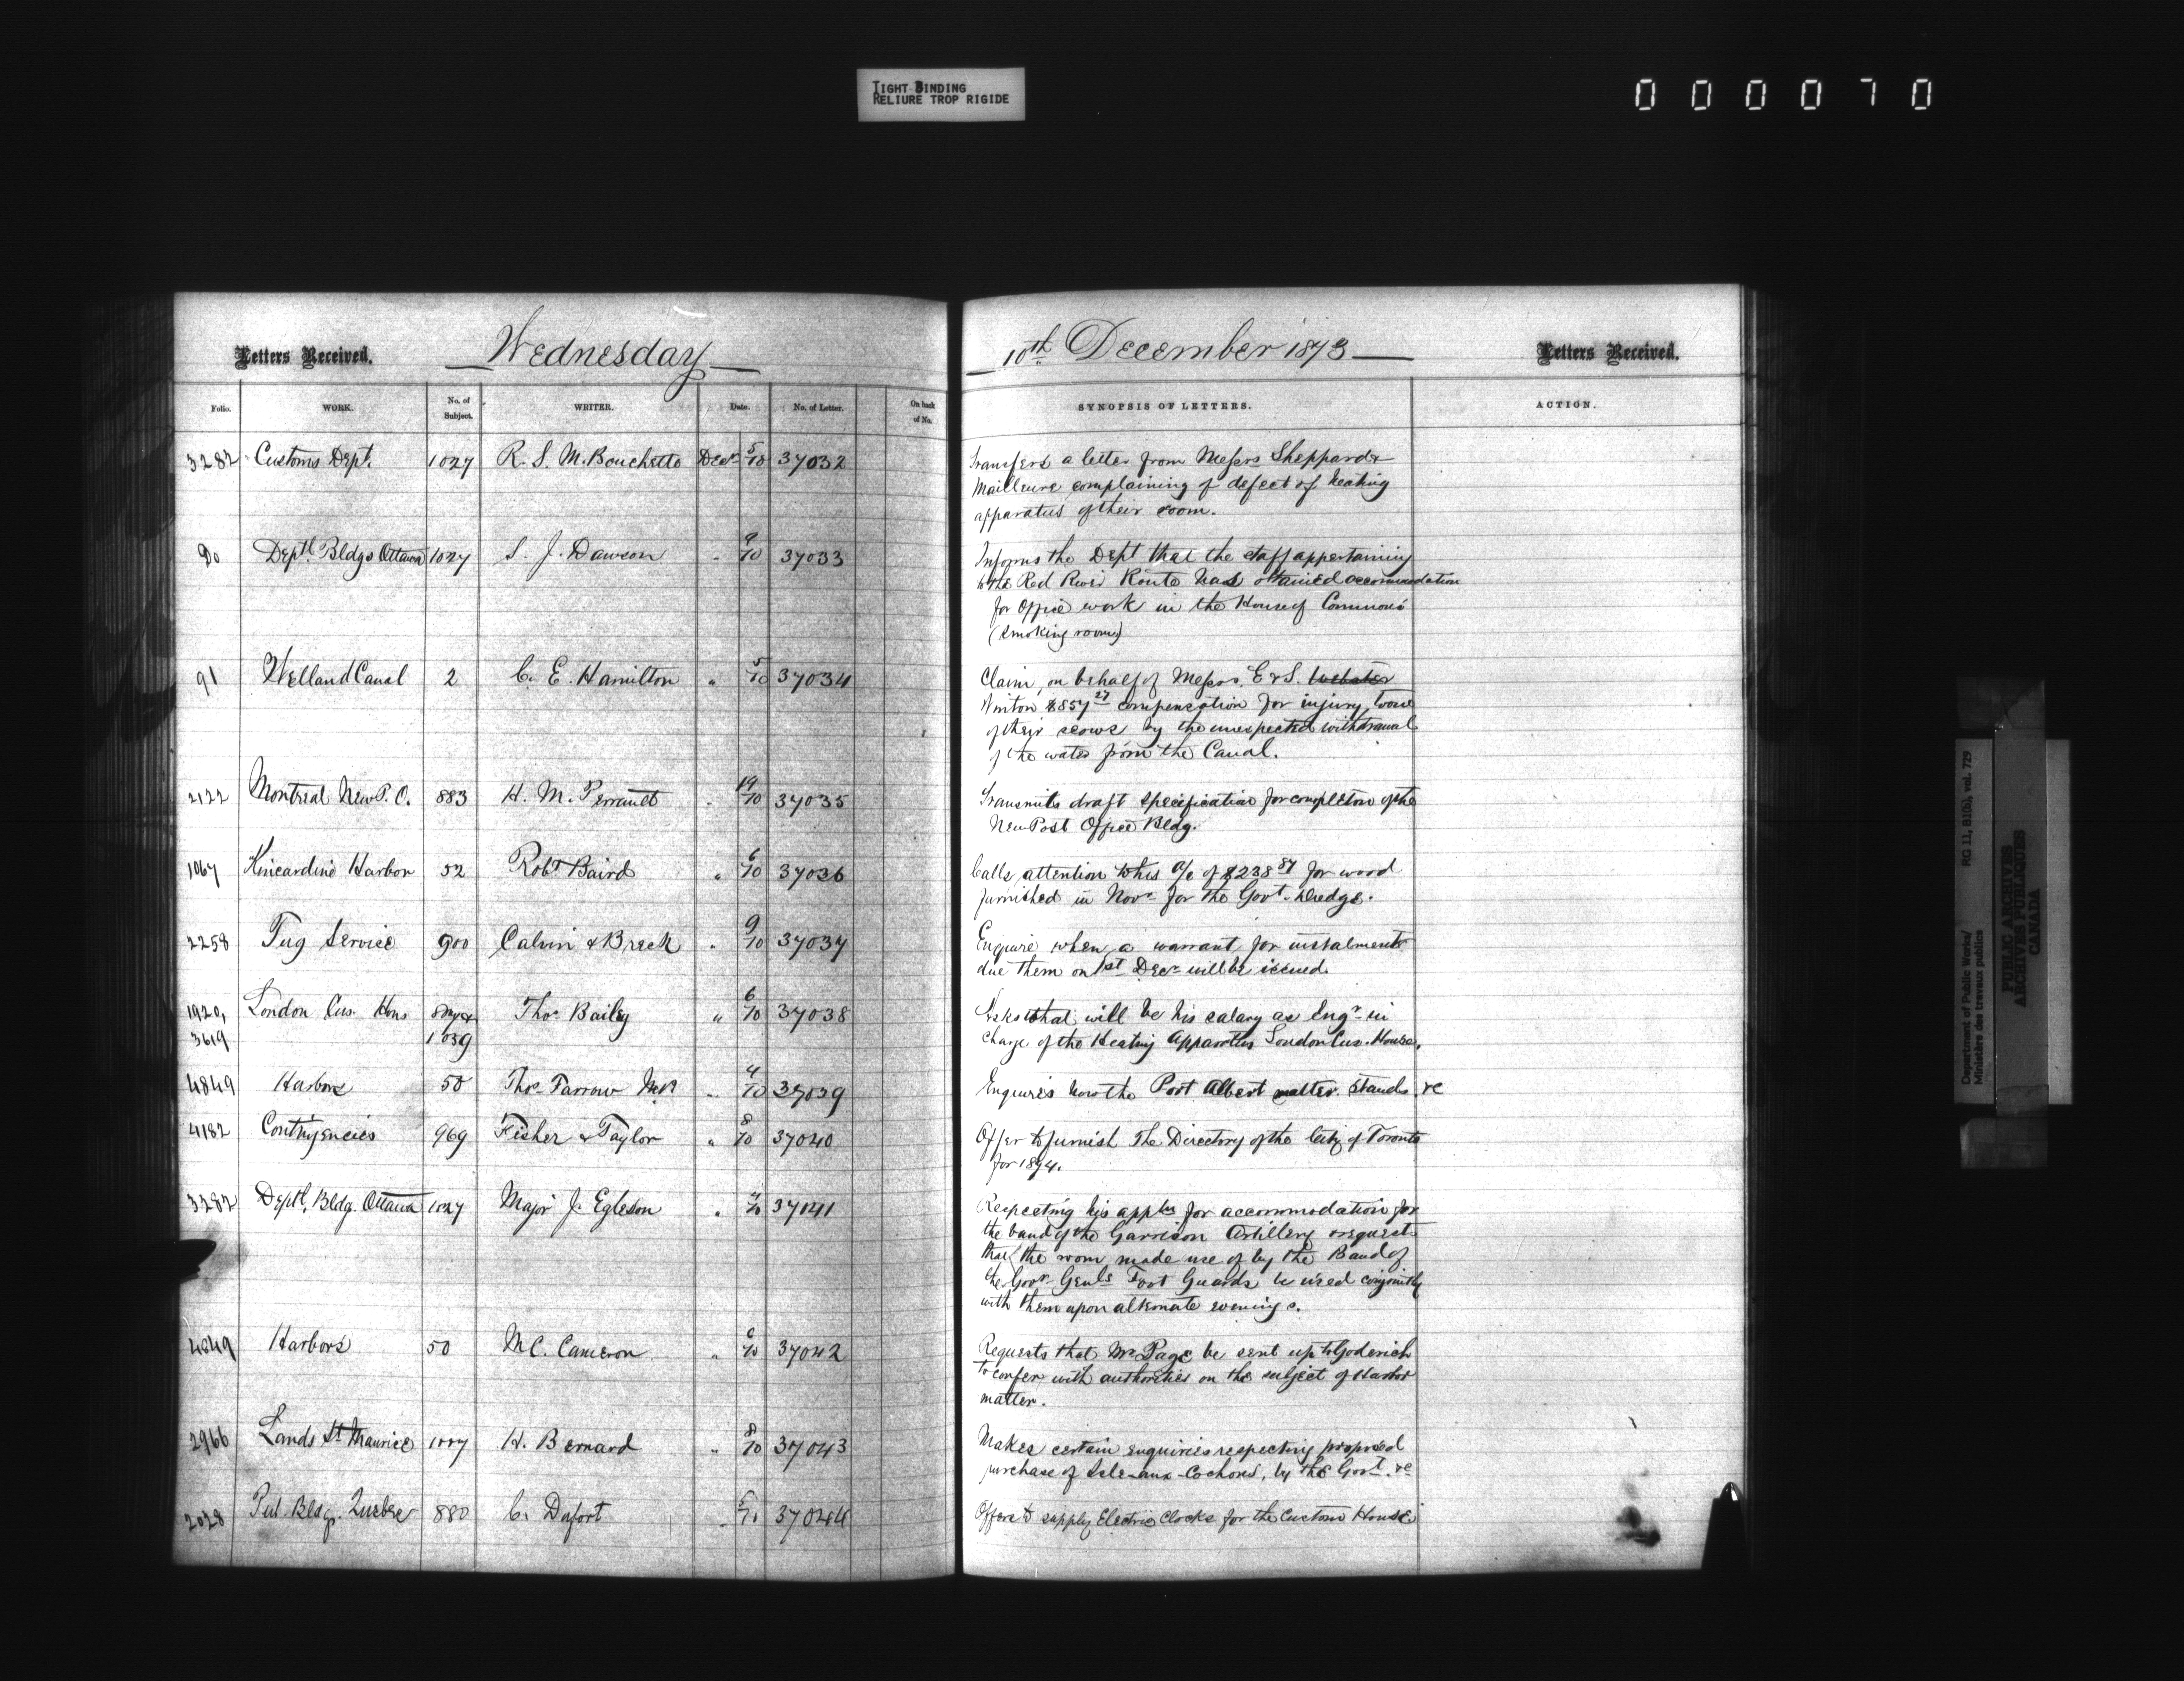 TIGHT BINDING
RELIURE TROP RIGIDE
000070
Letters Received. Wednesday 10th December 1873 Letters Received.
Folio. WORK. No. of Subject. WRITER. Date. No. of Letter. On back of No. SYNOPSIS OF LETTERS. ACTION.
3282 Customs Dept. 1027 R. S. M. Bouchette Decr 5/10 37032 Transfers a letter from Messrs Sheppard &
Mailleure complaining of defect of heating
apparatus of their room.
Do Deptl Bldgs Ottawa 1027 S. J. Dawson " 9/10 37033 Informs the Dept that the staff appertaining
to the Red River Route has obtained accommodation
for Office work in the House of Commons
(smoking room)
91 Welland Canal 2 C. E. Hamilton " 5/10 37034 Claim, on behalf of Messrs. E & S. Webster
Winton $857 27 compensation for injury to one
of their scows by the unexpected withdrawal
of the water from the Canal.
2122 Montreal New P. O. 883 H. M. Perrault " 19/10 37035 Transmits draft specification for completion of the
New Post Office Bldg.
1067 Kincardine Harbor 52 Robt Baird " 6/10 37036 Calls attention to his a/c of $238 87 for wood
furnished in Novr for the Govt. dredge.
2258 Tug Service 900 Calvin & Breck " 9/10 37037 Enquire when a warrant for instalments
due them on 1st Decr will be issued.
1920, London Cus. Hous " 6/10 37038 Thos Bailey Asks what will be his salary as Engr in
3619 1039 charge of the Heating Apparatus London Cus. House.
4849 Harbors 50 Thos Farrow MP " 4/10 37039 Enquires how the Port Albert matter stands. re
4182 Contingencies 969 Fisher & Taylor " 8/10 37040 Offer to furnish The Directory of the City of Toronto
for 1874.
3282 Deptl. Bldg. Ottawa 1027 Major J. Egleson " 37041 Respecting his appln for accommodation for
the band of the Garrison Artillery request
that the room made use of by the Band of
the Govr Genls Foot Guards be used conjointly
with them upon alternate evenings.
4849 Harbors 50 M C. Cameron " 37042 Requests that Mr Page be sent up to Goderich
to confer with authorities on the subject of Harbor
matter.
2966 Lands St Maurice 1007 H. Bernard " 8/10 37043 Makes certain enquiries respecting proposed
purchase of Isle-aux-Cochons, by the Govt. re
2028 Pub Bldgs. Quebec 880 C. Dafort 5/10 37044 Offers to supply Electric Clocks for the Custom House
Department of Public Works/
Ministère des travaux publics
RG 11, B1(b), vol. 729
PUBLIC ARCHIVES
ARCHIVES PUBLIQUES
CANADA